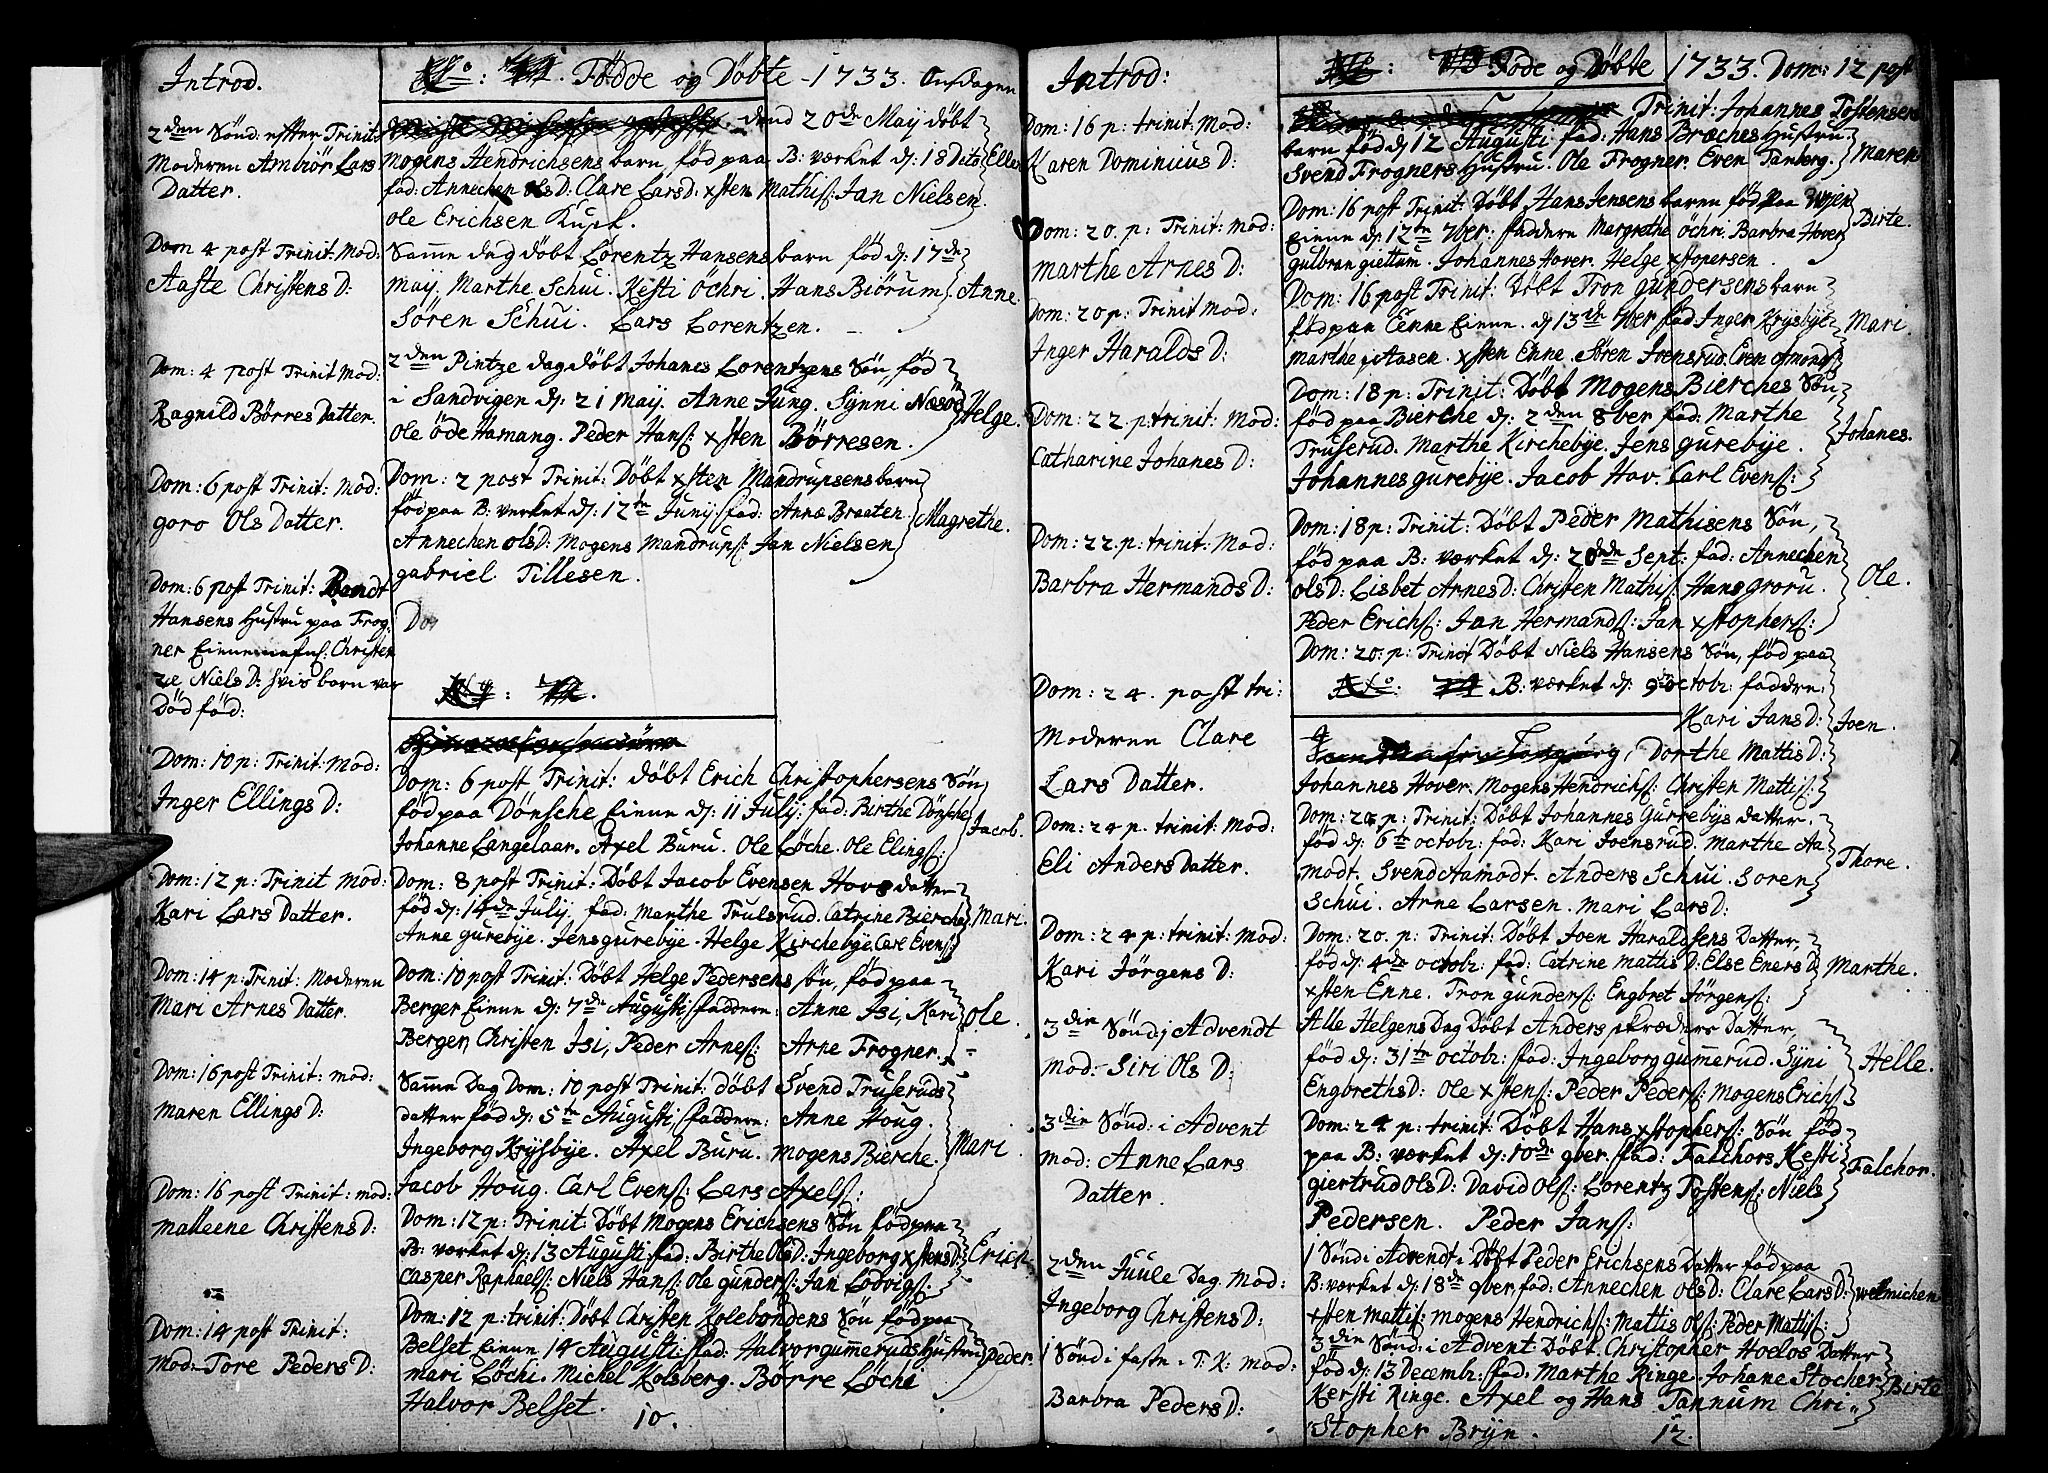 Introd.
Födde og Döbte - 1733. Onsdagen
2den Sönd: effter Trinit:
Moderen Ambiör Lars
Datter.
dend 20de Maij döbt
Mogens Hendrichsens barn, föd paa B: værket d: 18 Dito Ellen
fad: Annechen OlsD: Clare LarsD: xsten Mathiss: Jan Nielsen.
Ole Erichsen Kusk.
Dom 4 post Trinit: Mod:
Aaste Christens D:
Samme dag döbt Lorentz Hansens barn föd d: 17de
Maij. Marthe Schui. Kesti Öchri. Hans Biörum. Anne.
Sören Schui. Lars Lorentzen.
Dom: 4 post Trinit Mod:
Ragnild Börres Datter.
2den Pintze dag döbt Johanes Lorentzens Sön, föd
i Sandvigen d: 21 Maij. Anne Jung. Synni Næsöe Helge.
Ole öde Hamang. Peder Hanss: xsten Börresen.
Dom: 6 post Trinit: Mod:
goro Ols Datter.
Dom: 2 post Trinit: Döbt xsten Mandrupsens barn
föd paa B: verket d: 12te Junij: fad: Anne Braaten. Magrethe.
Annechen olsD: Mogens Mandrups: Jan Nielsen
gabriel Tillesen.
Dom: 6 post Trinit: Bendt
Hansens Hustru paa Frog-
ner Eiene Christen
ze Niels D: hvis barn var
Död föd:
Dom: 10 p: Trinit: Mod:
Inger Ellings D:
Dom: 6 post Trinit: döbt Erich Christophersens Sön
föd paa Dönsche Eiene d: 11 Julij: fad: Birthe Dönsche Jacob.
Johanne Langelaar. Axel Buru. Ole Löche. Ole Elings:
Dom: 12 p: Trinit Mod:
Kari Lars Datter.
Dom: 8 post Trinit: Döbt Jacob Evensen Hovs datter
föd d: 14de Julij. fad: Marthe Trulsrud. Catrine Bierche Mari.
Anne gurebye. Jens gurebye. Helge Kirchebye, Carl Evens:
Dom: 14 p: Trinit: Moderen
Mari Arnes Datter.
Dom: 10 post Trinit: Döbt Helge Pedersens sön, föd paa
Berger Eiene d: 7de Augusti: faddere: Anne Isi, Kari Ole.
Berger, Christen Isi, Peder Arnes: Arne Frogner.
Dom: 16 post Trinit: mod:
maren Ellings D:
Samme Dag Dom: 10 post Trinit: döbt Svend Truseruds
datter föd d: 5te Augusti, faddere: Anne Houg.
Ingeborg Krysbye. Axel Buru. Mogens Bierche. Mari.
Jacob Houg. Carl Evens: Lars Axels:
Dom: 16 post Trinit: mod:
malleene Christens D:
Dom: 12 p: Trinit: Döbt Mogens Erichsens Sön föd paa
B: værket d: 13 Augusti: fad: Birthe OlsD: Ingeborg xstensD: Erich
Casper Raphaels: Niels Hans: Ole gunders: Jan Lodvigs:
Dom: 14 post Trinit:
Mod: Tore Peders D:
Dom: 12 p: trinit: Döbt Christen Kolebondens Sön föd paa
Belset Eiene 14 Augusti: fad: Halvor gumeruds Hustru Peder.
mari Löchi. Michel Kolsberg. Börre Löche
Halvor Belset.
10.
Introd:
Fode og Döbte 1733. Dom: 12 post
Trinit: Johannes Tostensens
Dom: 16 p: trinit: Mod:
Karen Dominicus D:
barn föd d: 12 Augusti fad: Hans Bræches Hustru Maren
Svend Frogners Hustru. Ole Frogner. Even Tanberg.
Dom: 20. p: Trinit: Mod:
marthe Arnes D:
Dom: 16 post Trinit: Döbt Hans Jensens barn föd paa
Eiene d: 12te 7ber: faddere Margrethe Öchri Barbra Hover Birte.
gulbran giettum. Johannes Hover. Helge xstopersen.
Dom: 20 p: Trinit Mod:
Inger Haralds D:
Dom: 16 post Trinit: Döbt Tron gundersens barn
föd paa Enne Eiene. d: 13de 7ber fad: Inger Krysbye Mari
marthe i Aasen. xsten Enne. Sören Joensrud. Even
Dom: 22 p: trinit: Mod:
Catharine Johanes D:
Dom: 18 p: Trinit: Döbt Mogens Bierches Sön,
föd paa Bierche d: 2den 8ber fad: Marthe Johanes.
Truserud. Marthe Kirchebye. Jens gurebye.
Johannes gurebye. Jacob Hov. Carl Evens:
Dom: 22. p: trinit: Mod:
Barbra Hermands D:
Dom: 18 p: Trinit: Döbt Peder Mathisens Sön,
föd paa B: værket d: 28de Sept: fad: Annechen
olsD: Lisbet ArnesD: Christen Mathis: Hans groru. Ole.
Peder Erichs: Jan Hermands: Jan xstophers:
Dom: 20: p: Trinit Döbt Niels Hansens Sön, föd paa
B: værket d: 9de octobr: faddre:
Dom: 24. post tri:
Moderen Clare
Lars Datter.
Kari Jans D: Joen.
Dorthe Mattis D:
Johannes Hover. Mogens Hendrichs: Christen Mattis:
Dom: 24 p. trinit: Mod:
Eli Anders Datter.
Dom: 20 p: Trinit: Döbt Johannes Gurrebys datter.
föd d: 6te octobr: fad: Kari Joensrud. marthe Aa Thore.
modt. Svend Aamodt. Anders Schui. Soren
Schui. Arne Larsen. Mari LarsD:
Dom: 24 p: trinit: Mod:
Kari Jörgens D:
Dom: 20. p: Trinit: Döbt Joen Haraldsens Datter,
föd d: 4de octobr: fad: Catrine Mattis D: Else Eners D Marthe.
xsten Enne. Tron gunders: Engbret Jörgens:
3die Sönd: i Advendt
Mod: Siri Ols D:
Alle Helgens Dag Döbt Anders skræders Datter,
föd d: 31te octobr: fad: Ingeborg gumerud. Syni Helle.
EngbrethsD: Ole xstens: Peder Peders: Mogens Erichs
3die Sönd: i Advent
mod: Anne Lars
Datter.
Dom: 24 p: trinit: Döbt Hans xstophers: Sön föd
paa B: værket d: 10de 9ber. fad: Falchors Kesti Falchor.
giertrud Ols D: David Ols: Lorentz Tostens: Niels
Pedersen. Peder Jans:
2den Juule Dag Mod:
Ingeborg Christens D:
1 Sönd i Advendt. Döbt Peder Erichsens Datter föd paa
B: værket d: 18de 9ber. fad: Annechen Ols D: Clare Lars D: welmichen
xsten Mattis: mogens Hendrichs: Mattis Ols: Peder Mattis:
1 Sönd i faste i T. K: mod:
Barbra Peders D:
3die Sönd: i Advent. Döbt Christopher Hoelos Datter
föd d: 13 Decembr: fad: Marthe Ringe. Johane Stocher Birte
Kersti Ringe. Axel og Hans Tannum Chri-
stopher Bryn.
12.